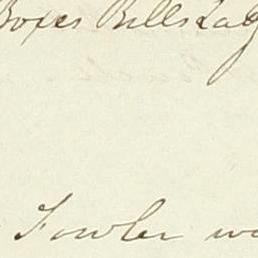 Boxes Bills Lad
Fowler wa